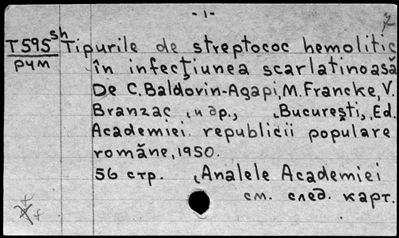 -1-
T595 sh Tipurile de streptococ hemolitic
рум în infecţiunea scarlatinoasă
De C. Baldovin-Agapi, M. Francke, V.
Branzac и др., Bucureşti, Ed.
Academiei republicii populare
române, 1950.
56 стр. Analele Academiei
см. след. карт.